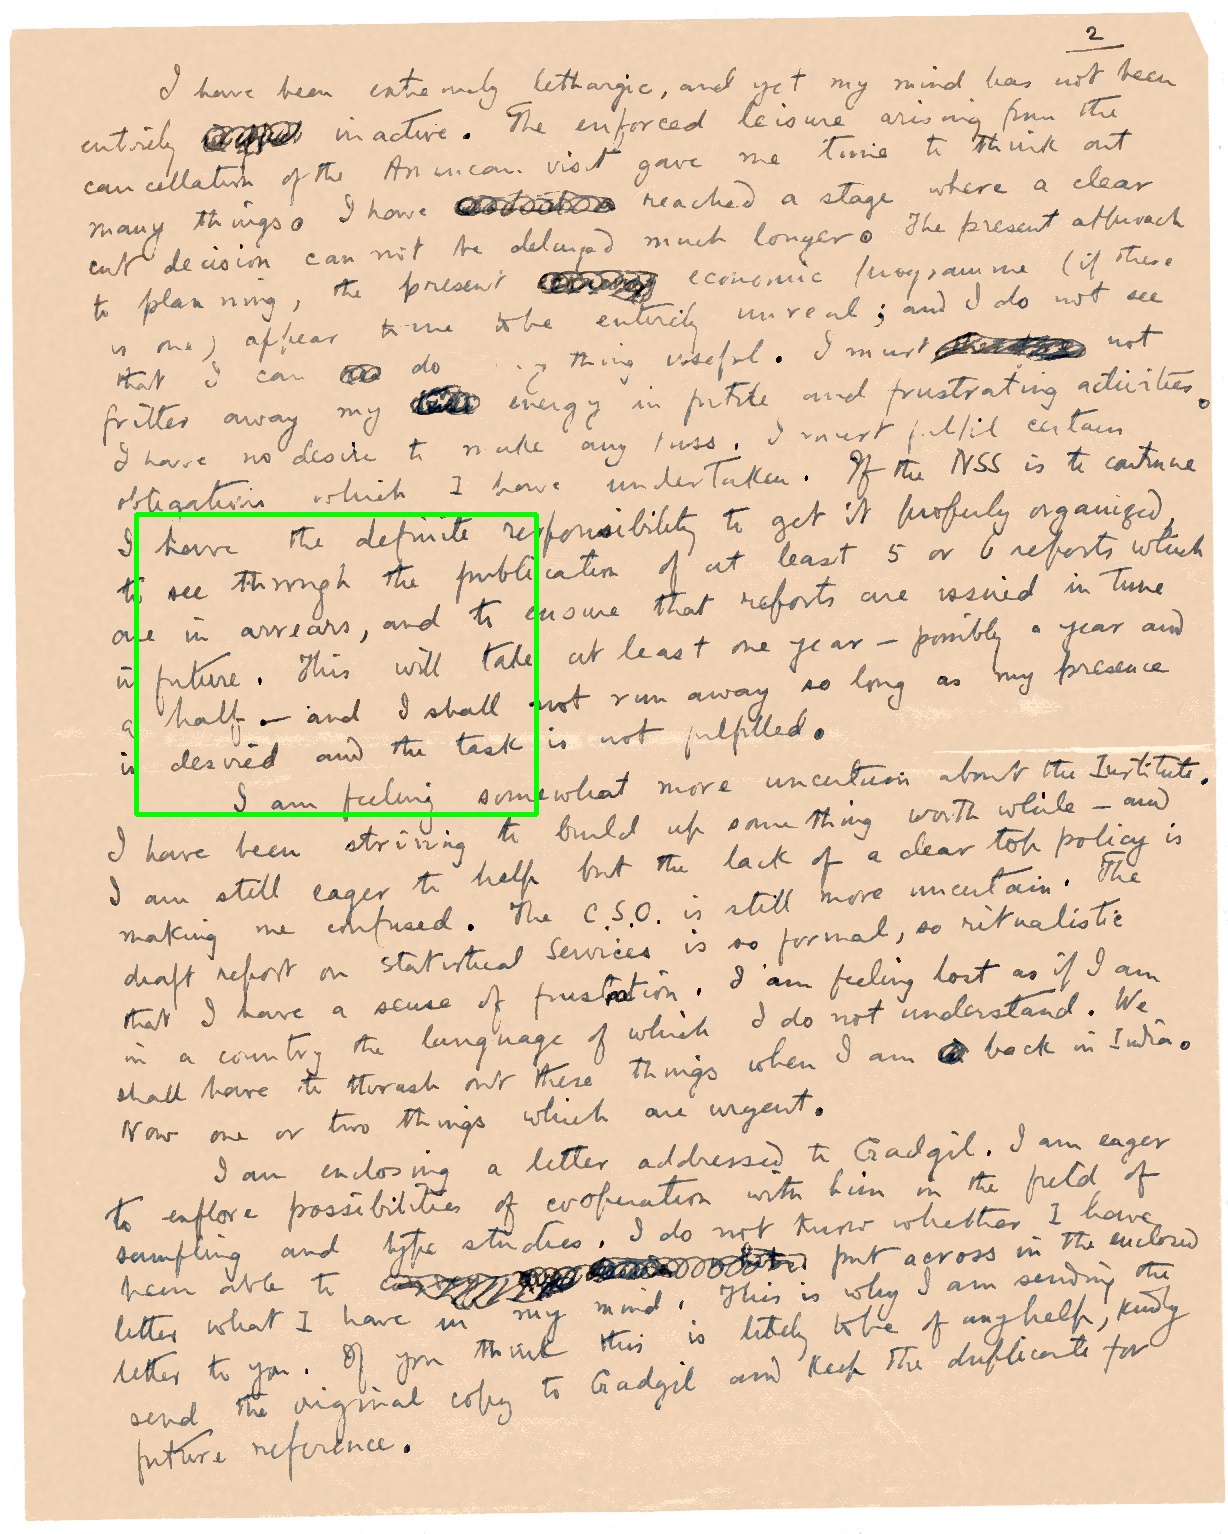 2
I have been extremely lethargic, and yet my mind has not been
entirely inactive. The enforced leisure arising from the
cancellation of the American visit gave me time to think out
many things. I have reached a stage where a clear
cut decision can not be delayed much longer. The present approach
to planning, the present economic programme (if there
is one) appear to me to be entirely unreal; and I do not see
that I can do thing useful. I must not
fritter away my energy in futile and frustrating activities.
I have no desire to make any fuss. I must fulfil certain
obligations which I have undertaken. If the NSS is to continue
I have the definite responsibility to get it properly organized,
to see through the publication of at least 5 or 6 reports which
are in arrears, and to ensure that reports are issued in time
in future. This will take at least one year – possibly a year and
a half – and I shall not run away so long as my presence
is desired and the task is not fulfilled.
I am feeling somewhat more uncertain about the Institute.
I have been striving to build up something worth while – and
I am still eager to help but the lack of a clear top policy is
making me confused. The C.S.O. is still more uncertain. The
draft report on Statistical Services is so formal, so ritualistic
that I have a sense of frustation. I am feeling lost as if I am
in a country the language of which I do not understand. We
shall have to thrash out these things when I am back in India.
Now one or two things which are urgent.
I am enclosing a letter addressed to Gadgil. I am eager
to explore possibilities of cooperation with him in the field of
sampling and type studies. I do not know whether I have
been able to put across in the enclosed
letter what I have in my mind. This is why I am sending the
letter to you. If you think this is likely to be of any help, kindly
send the original copy to Gadgil and keep the duplicate for
future reference.